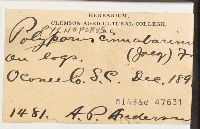 HERBARIUM,
CLEMSON AGRICULTURAL COLLEGE.
PYCNOPORUS
Polyporus cinnabarinus
on logs. (Jacq) Fr
Oconee Co. S.C. Dec. 189
MIN862 47631
1481. A. P. Anderson